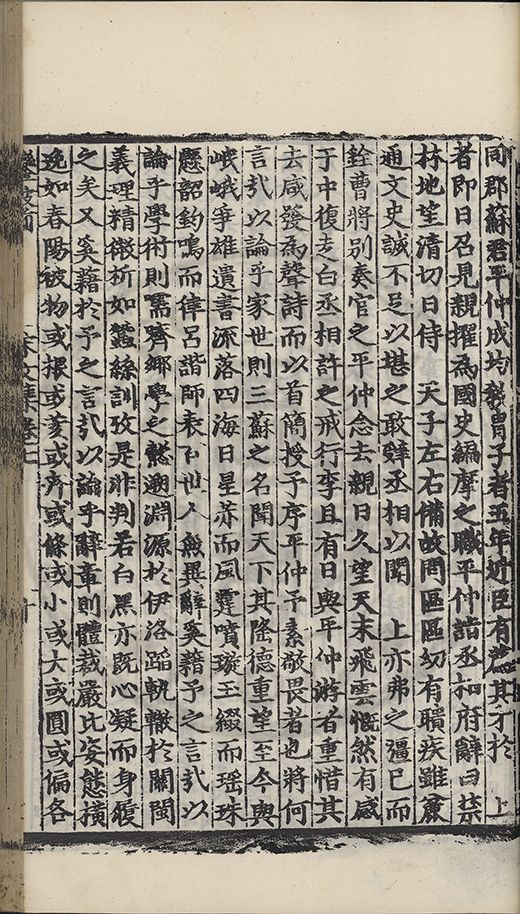 同郡蘇君平仲成均教胄子者五年近臣有薦其才於　上
者即日召見親擢為國史編摩之職平仲詣丞相府辭曰禁
林地望清切日侍　天子左右備故問區區幼有聵疾雖麄
通文史誠不足以堪之敢辭丞相以聞　上亦弗之彊已而
銓曹將別奏官之平仲念去親日久望天末飛雲慨然有感
于中復走白丞相許之戒行李且有日與平仲游者重惜其
去咸發為聲詩而以首簡授予序平仲予素敬畏者也將何
言㢤以論乎家世則三蘇之名聞天下其隆德重望至今與
峨峨爭雄遺書流落四海日星荐而風霆噴璇玉綴而瑶珠
懸韶鈞鳴而律呂諧師表下世人無異辭奚藉予之言㢤以
論乎學術則濡躋鄉學之懿遡淵源於伊洛蹈軌轍於關閩
義理精微析如蠶絲訓攷是非判若白黑亦既心疑而身履
之矣又奚藉於予之言㢤以論乎辭章則體裁嚴比姿態橫
逸如春陽被物或根或荄或卉或條或小或大或圓或偏各